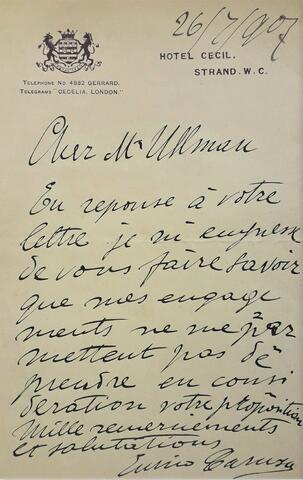 26/7/907
HOTEL CECIL.
STRAND. W. C.
TELEPHONE NO. 4882 GERRARD.
TELEGRAMS "CECELIA, LONDON."
Cher Mr Ullman
En reponse à votre
lettre je m'empresse
de vous faire savoir
que mes engage
ments ne me per
mettent pas de
prendre en consi
deration votre proposition
Mille remerciements
et salutations
Enrico Caruso